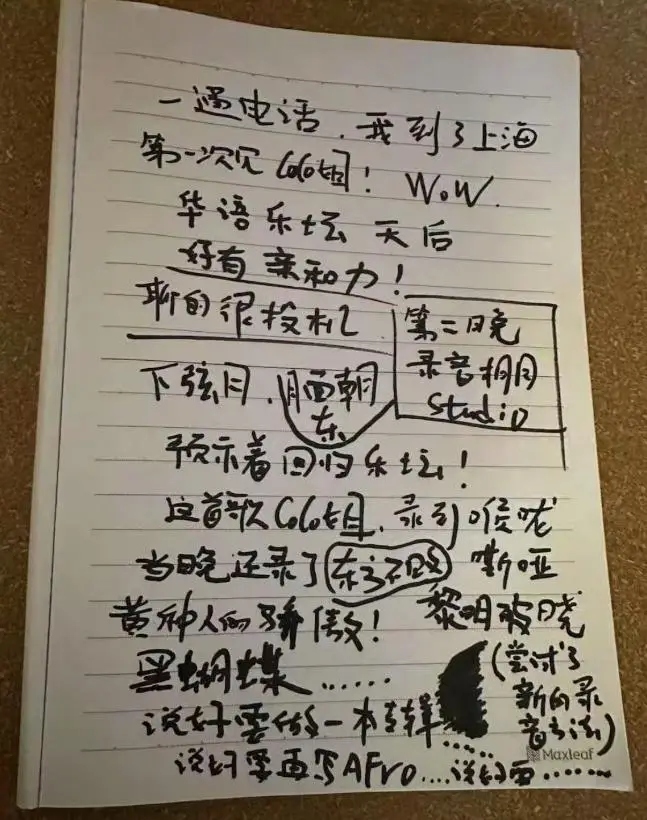 一通电话，我到了上海
第一次见 CoCo姐！ WoW.
华语乐坛 天后
好有亲和力！
聊的很投机
第二晚
录音棚
Studio
下弦月，月面朝
东
预示着回归乐坛！
这首歌CoCo姐，录到喉咙
嘶哑
当晚还录了东方不败
黄种人的骄傲！ 黎明破晓
黑蝴蝶……
(尝试了
新的录
音方法)
说好要做一本专辑
说好要再写AFro....说好要......
Maxleaf